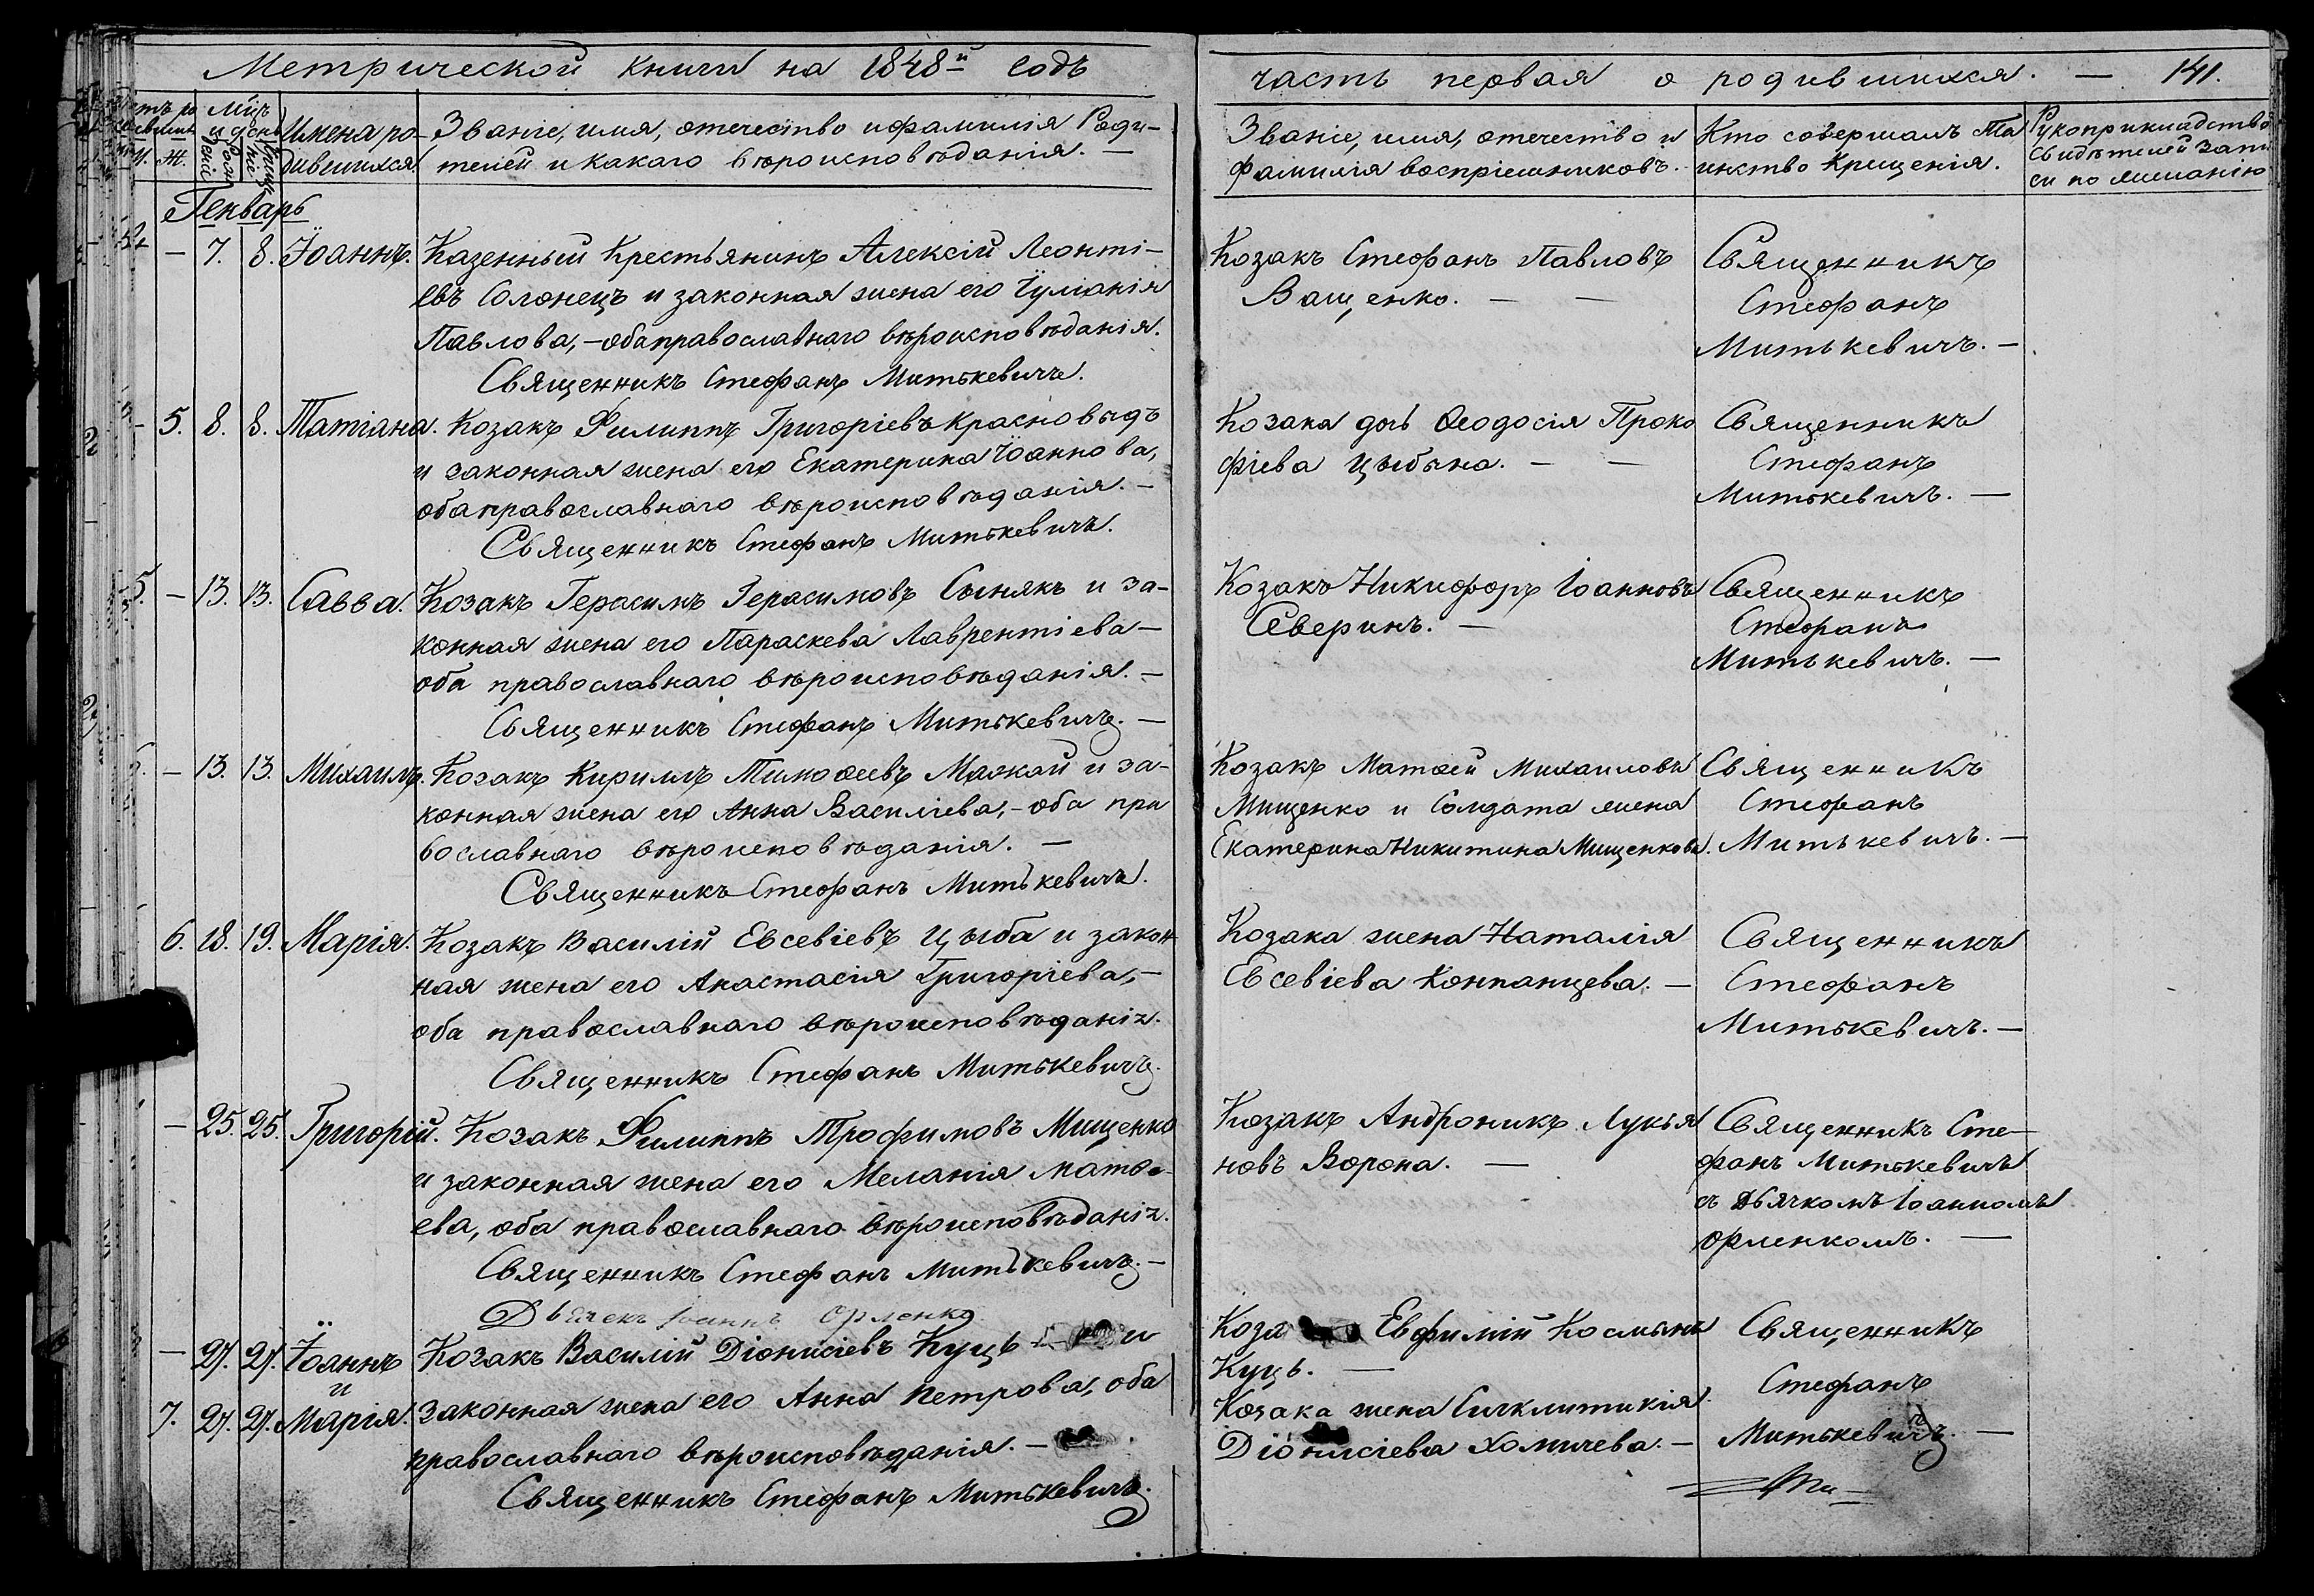 Метрической книги на 1848й годъ
часть первая о родившихся. — 141.
Мцъ
и день
Имена ро-
дившихся.
Званіе, имя, отечество и фамилія Роди-
телей и какаго вѣроисповѣданія. —
Званіе, имя, отечество и
фамилія воспріемниковъ.
Кто совершалъ Та
инство Крещенія.
Рукоприкладство
свидѣтелей запи
си по желанію
М. Ж.
Генварь
— 7. 8. Іоаннъ. Казенный Крестьянинъ Алексій Леонті-
евъ Солонецъ и законная жена его Іуліанія
Павлова, — оба православнаго вѣроисповѣданія.
Священникъ Стефанъ Митькевичъ.
Козакъ Стефанъ Павловъ
Ващенко. — —
Священникъ
Стефанъ
Митькевичъ. —
5. 8. 8. Татіана. Козакъ Филиппъ Григоріевъ Красновыдъ
и законная жена его Екатерина Іоаннова,
оба православнаго вѣроисповѣданія. —
Священникъ Стефанъ Митькевичъ.
Козака дочь Ѳеодосія Проко
фіева Цыбына. — —
Священникъ
Стефанъ
Митькевичъ. —
5. — 13. 13. Савва. Козакъ Герасимъ Герасимовъ Сынякъ и за-
конная жена его Параскева Лаврентіева —
оба православнаго вѣроисповѣданія. —
Священникъ Стефанъ Митькевичъ. —
Козакъ Никифоръ Іоанновъ
Северинъ. —
Священникъ
Стефанъ
Митькевичъ. —
— 13. 13. Михаилъ. Козакъ Кириллъ Тимоѳеевъ Мазкай и за-
конная жена его Анна Василіева, — оба пра
вославнаго вѣроисповѣданія. —
Священникъ Стефанъ Митькевичъ.
Козакъ Матѳей Михаиловъ
Мищенко и Солдата жена
Екатерина Никитина Мищенкова.
Священникъ
Стефанъ
Митькевичъ. —
6. 18. 19. Марія. Козакъ Василій Евсевіевъ Цыба и закон
ная жена его Анастасія Григоріева, —
оба православнаго вѣроисповѣданія.
Священникъ Стефанъ Митькевичъ.
Козака жена Наталія
Евсевіева Компанцева. —
Священникъ
Стефанъ
Митькевичъ. —
— 25. 25. Григорій. Козакъ Филиппъ Трофимовъ Мищенко
и законная жена его Меланія Матѳе-
ева, оба православнаго вѣроисповѣданія.
Священникъ Стефанъ Митькевичъ. —
Дьячекъ Іоаннъ Орленко
Козакъ Андроникъ Лукья
новъ Ворона. —
Священникъ Сте-
фанъ Митькевичъ
съ Дьячкомъ Іоанномъ
Орленкомъ. —
— 27. 27. Іоаннъ Козакъ Василій Діонисіевъ Куць и
и
7. 27. 27. Марія. законная жена его Анна Петрова, оба
православнаго вѣроисповѣданія. —
Священникъ Стефанъ Митькевичъ.
Коза Евфимій Косминъ
Куць. —
Козака жена Сигклитикія
Діонисіева Хомичева. —
Священникъ
Стефанъ
Митькевичъ. —